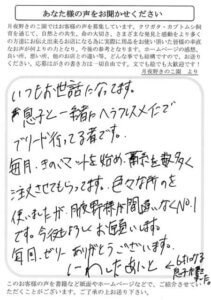 あなた様の声をお聞かせください
月夜野きのこ園ではお客様の声を募集しています。クワガタ・カブトムシ飼
育を通じて、自然との共生、命の大切さ、さまざまな発見と感動をより多く
の方達にお伝え出来るお店になる為に実際に用品をお使い頂いた皆様の率直
なお声が何よりの力となり、今後の参考となります。ホームページの感想、
良い所、悪い所、他のお店との違い等、どんな事でも結構ですので、お送り
ください。応募はがきの書き方は一切自由です。文でも絵でも大歓迎です！
月夜野きのこ園 より
いつもお世話になってます。
息子と一緒にヘラクレスメインで
ブリード行ってる者です。
毎月、きのこマットを始め、菌糸も数多く
注文させてもらってます。色々な所のを
使いましたが、月夜野様が間違いなくNo.1
です。今後もよろしくお願いします。
毎回、ゼリーありがとうございます。
いわしたあいと
息子が書きました
このお客様の声を書籍など紙面やホームページなどで、ご紹介させてい
ただくことがございます。ご了承の上お送り下さい。